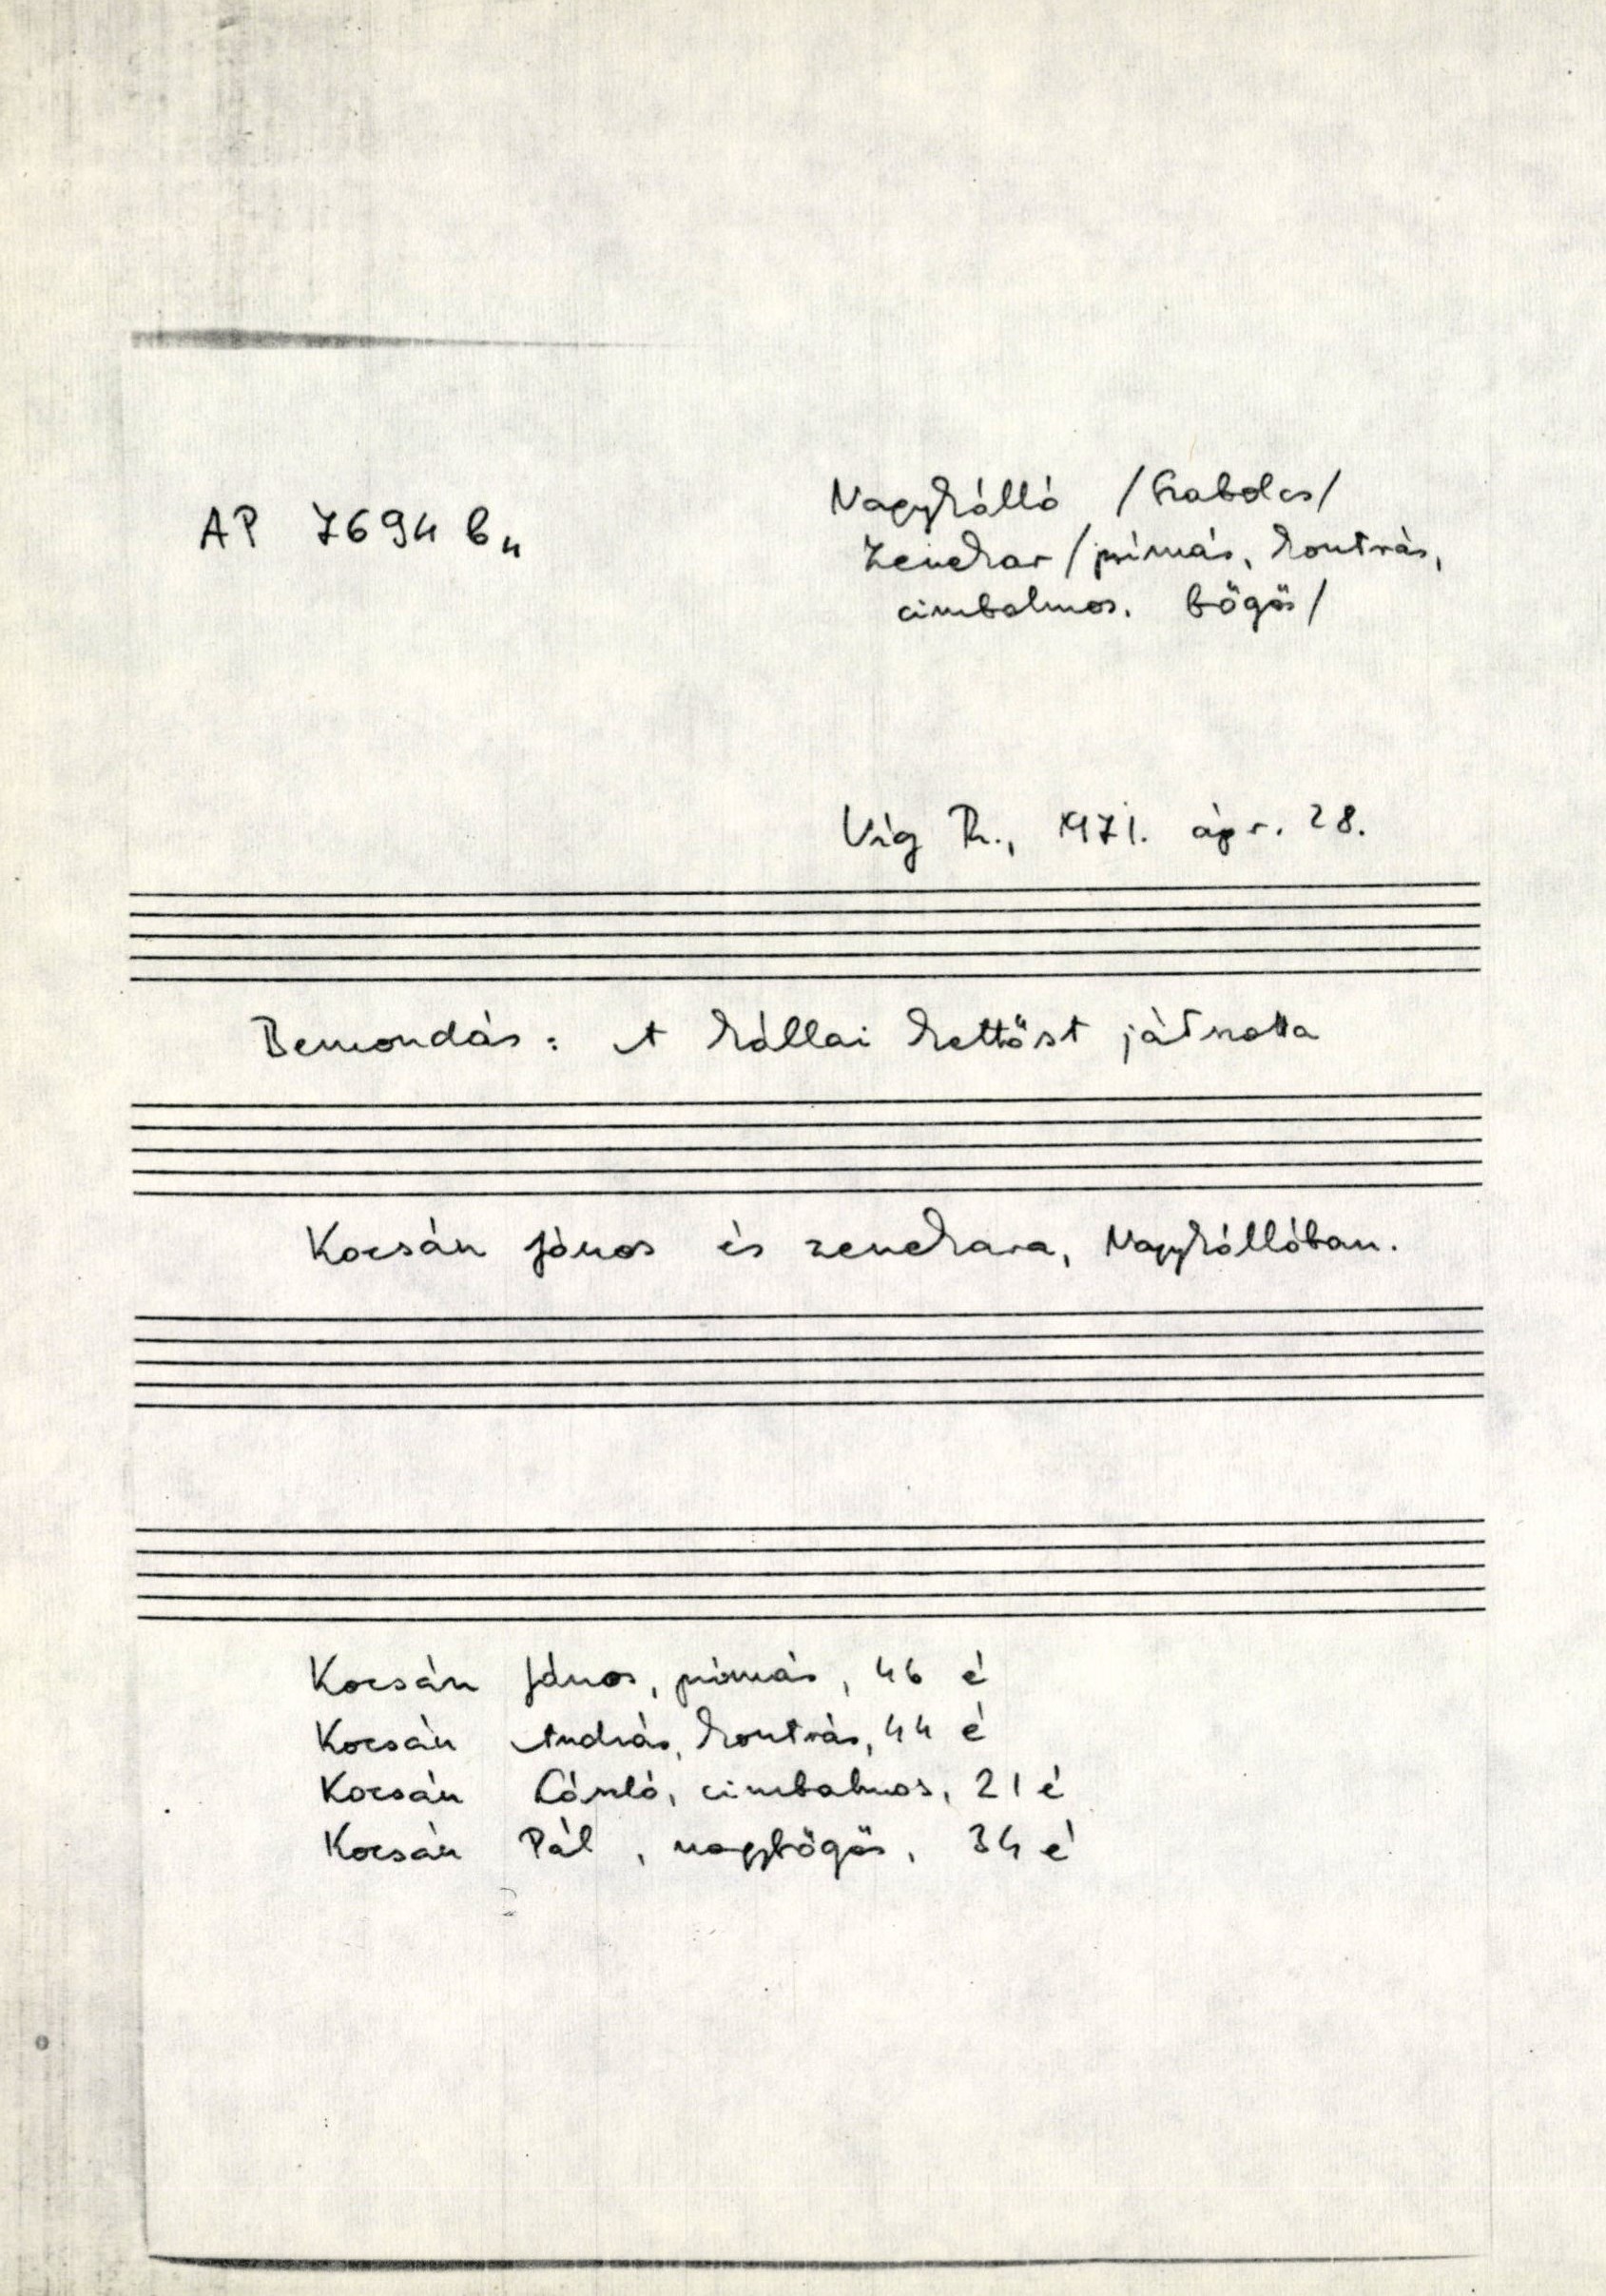 AP 7694 b₄
Nagykálló /Szabolcs/
Zenekar /prímás, kontrás,
cimbalmos. bőgős/
Víg R., 1971. ápr. 28.
Bemondás: A kállai kettőst játszotta
Kocsán János és zenekara, Nagykállóban.
Kocsán János, prímás, 46 é
Kocsán András, kontrás, 44 é
Kocsán László, cimbalmos, 21 é
Kocsán Pál, nagybőgős, 34 é